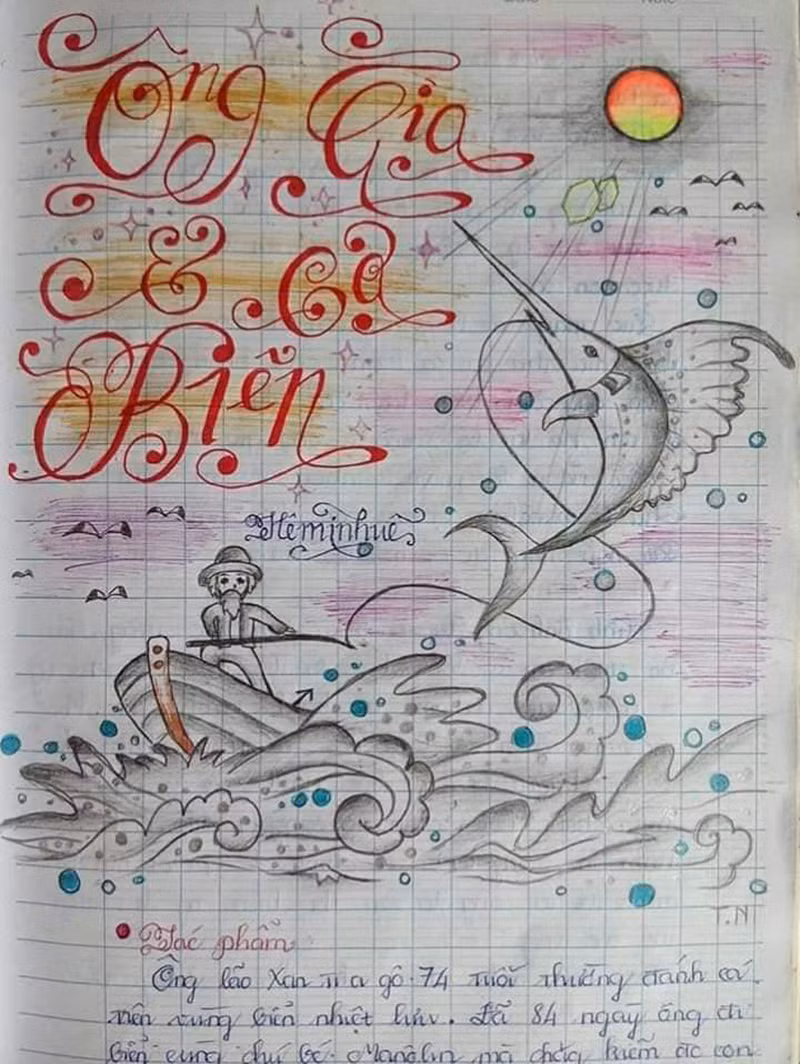 Ông Già
& Cá
Biển
Hêminhuê
T.N
Tác phẩm
Ông lão Xan ti a gô 74 tuổi thường đánh cá
trên vùng biển nhiệt lưu. Đã 84 ngày ông đi
biển cùng chú bé Manôlin mà chẳng kiếm đc con